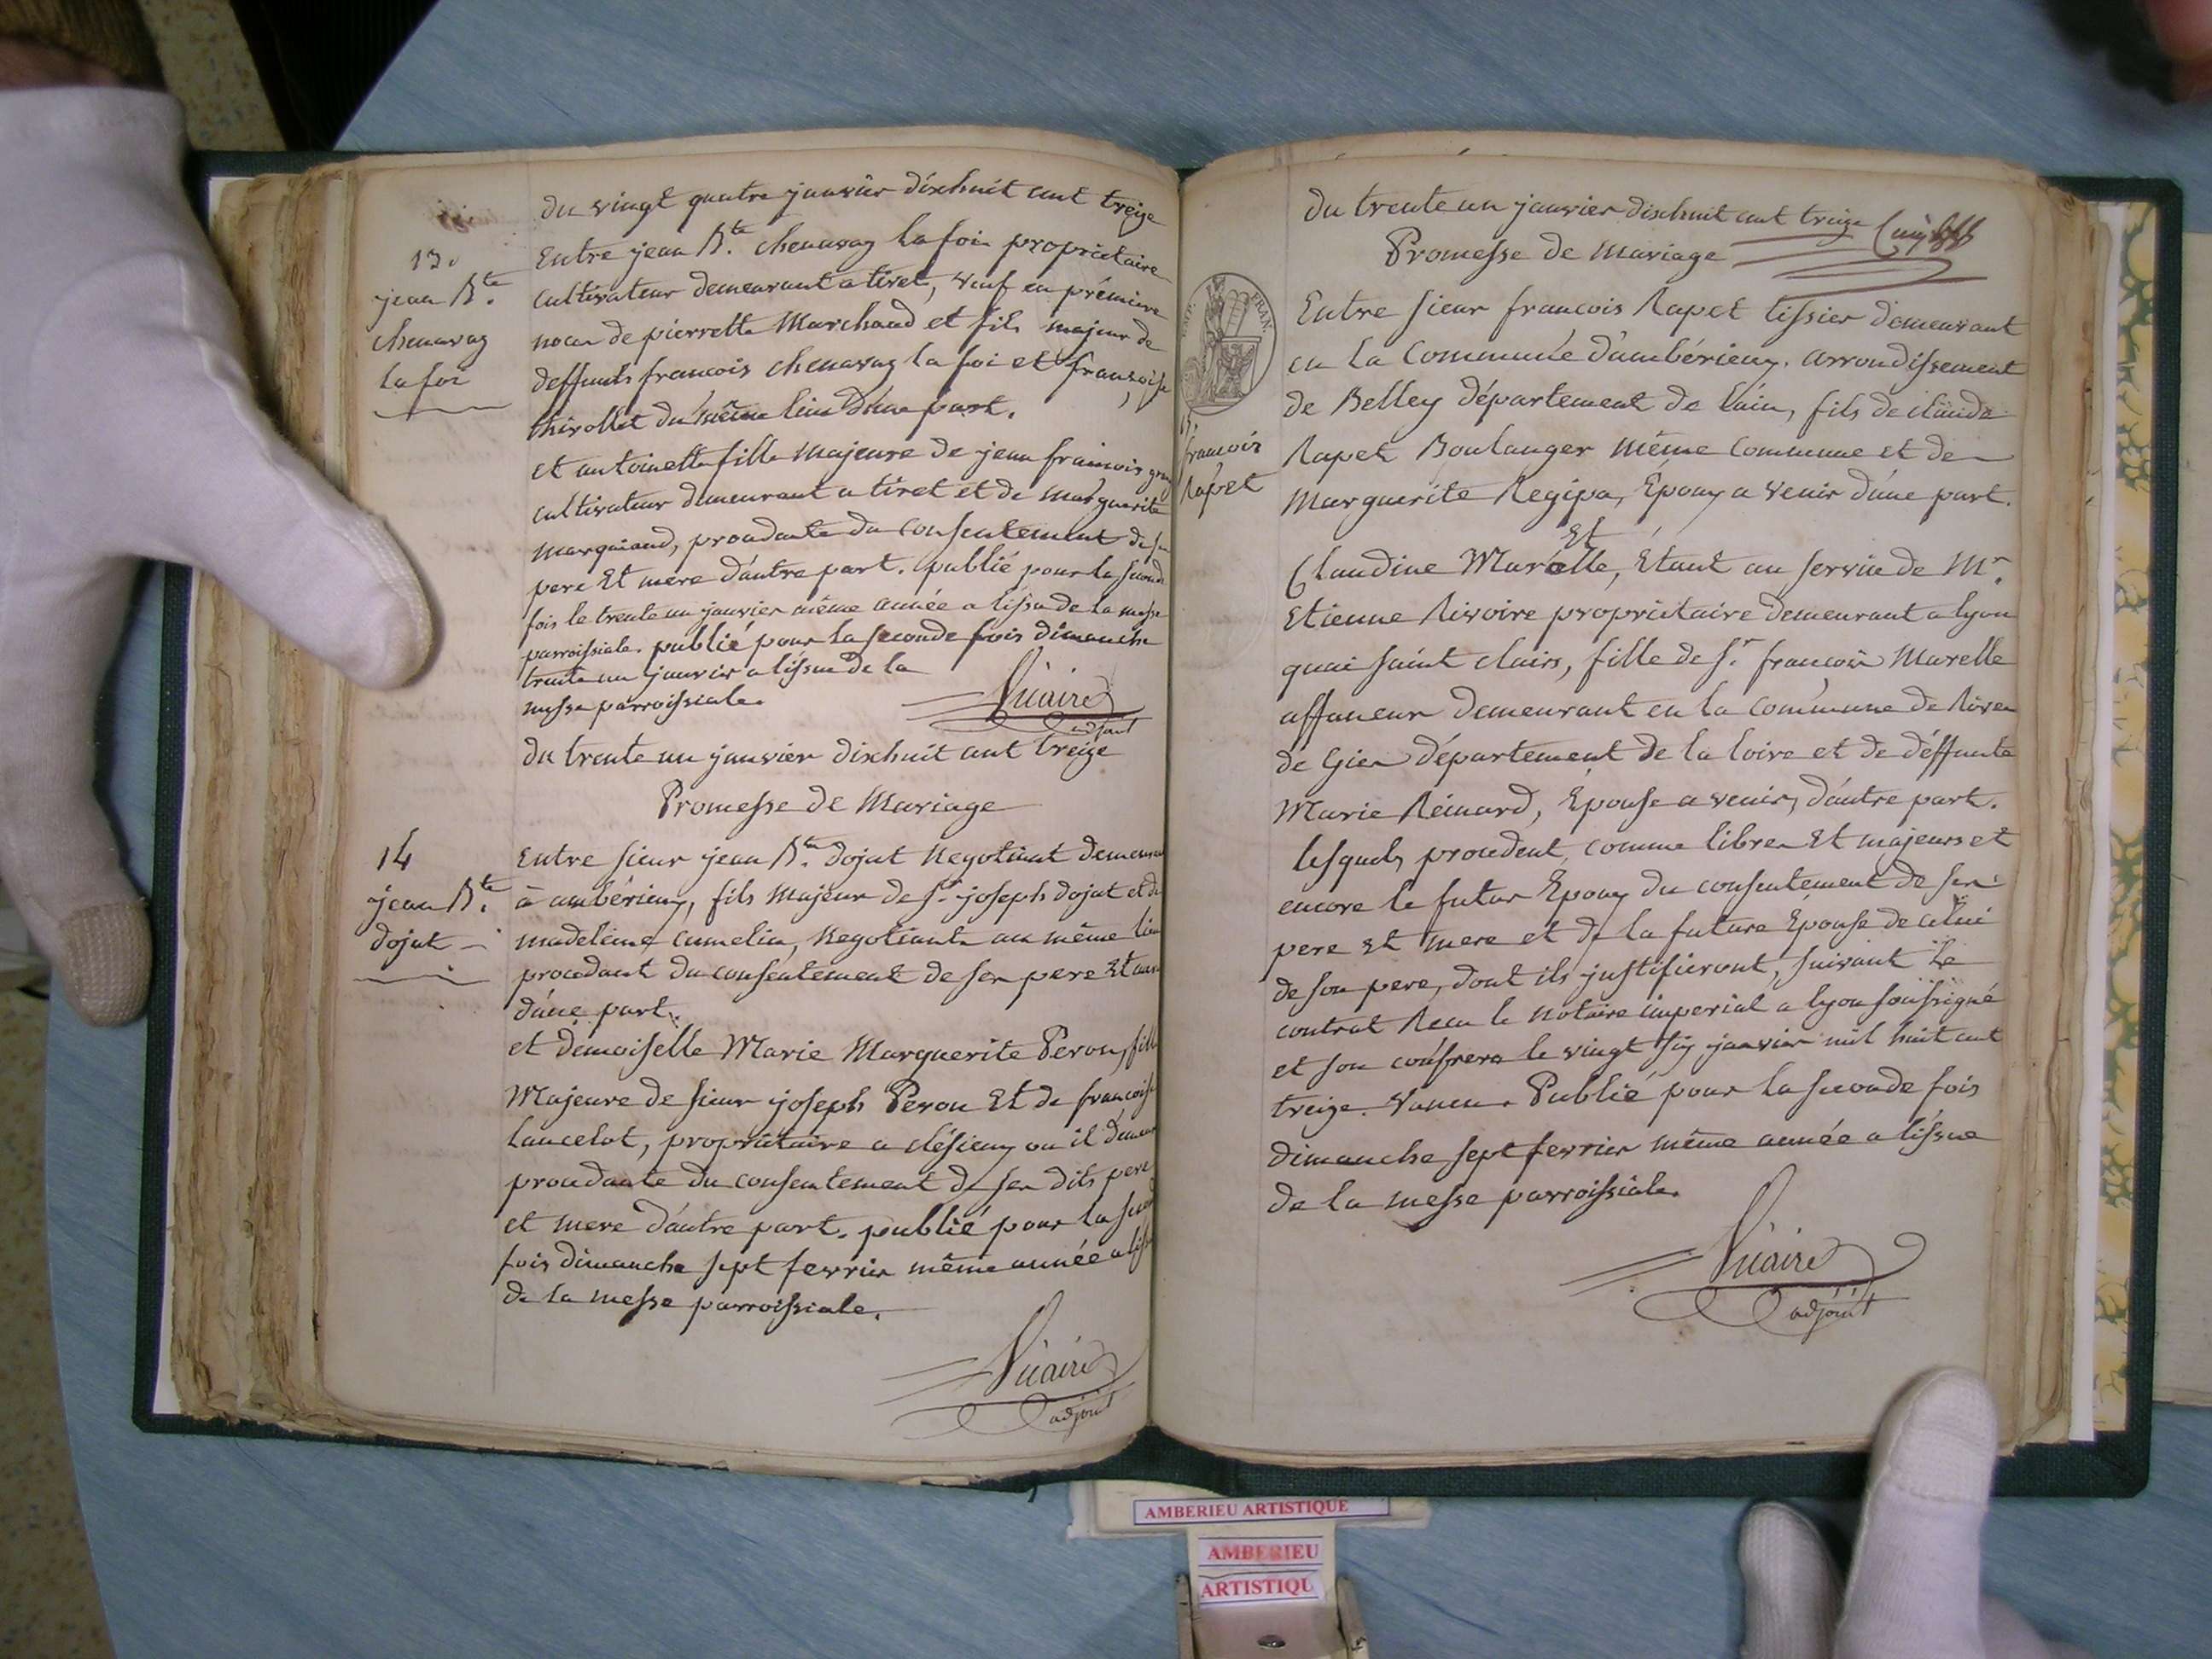 du vingt quatre janvier dixhuit cent treize
13.
jean Bte.
chenavaz
la foi
Entre jean Bte. chenavaz la foi propriétaire
cultivateur demeurant a tiret, veuf en prémiere
noce de pierrette Marchand et fils majeur de
deffunts francois chenavaz la foi et françoise
thirollet du même lieu d'une part.
et antoinette fille Majeure de jean francois
cultivateur demeurant a tiret et de marguerite
, procedante du consentement de
pere Et mere d'autre part. publié pour la seconde
fois le trente un janvier même année a lissu de la messe
parroissiale. publié pour la seconde fois dimanche
trente un janvier a lissue de la
messe parroissiale.
adjoint
du trente un janvier dixhuit cent treize
Promesse de Mariage
14
jean Bte.
dojat
Entre sieur jean Bte. dojat Negotiant
à ambérieux, fils Majeur de Sr. joseph dojat et de
madeleine cumelin, Negotiants au même lieu
procedant du consentement de ses pere Et
d'une part.
et démoiselle Marie Marguerite Peron, fille
Majeure de sieur joseph Peron Et de françoise
Lancelot, propriétaire a clésieux ou il
procedante du consentement de ses dits pere
et mere d'autre part. publié pour la
fois dimanche sept fevrier même année a
de la messe parroissiale.
adjoint
du trente un janvier dixhuit cent treize
Promesse de Mariage
EMP. FRAN.
15.
francois
Rapet
Entre sieur francois Rapet tissier demeurant
en la Commune d'ambérieux. arrondissement
de Belley département de lain, fils de claude
Rapet Boulanger même Commune et de
Marguerite Regipa, Époux a venir d'une part.
Et
Claudine Marelle, Etant au service de Mr.
Etienne Rivoire propriétaire demeurant a lyon
quai saint clair, fille de Sr. françois Marelle
affaneur demeurant en la commune de Rive
de Gier département de la loire et de deffunte
Marie Rémard, Épouse a venir, d'autre part.
lesquels procedent, comme libres Et majeurs et
encore le futur Époux du consentement de ses
pere et mere et de la future Épouse de celui
de son pere, dont ils justifieront, suivant le
contrat Recu le notaire imperial a lyon soussigné
et son confrere le vingt six janvier mil huit cent
treize. Publié pour la seconde fois
dimanche sept fevrier même année a lissue
de la messe parroissiale.
adjoint
AMBERIEU ARTISTIQUE
AMBERIEU
ARTISTIQU